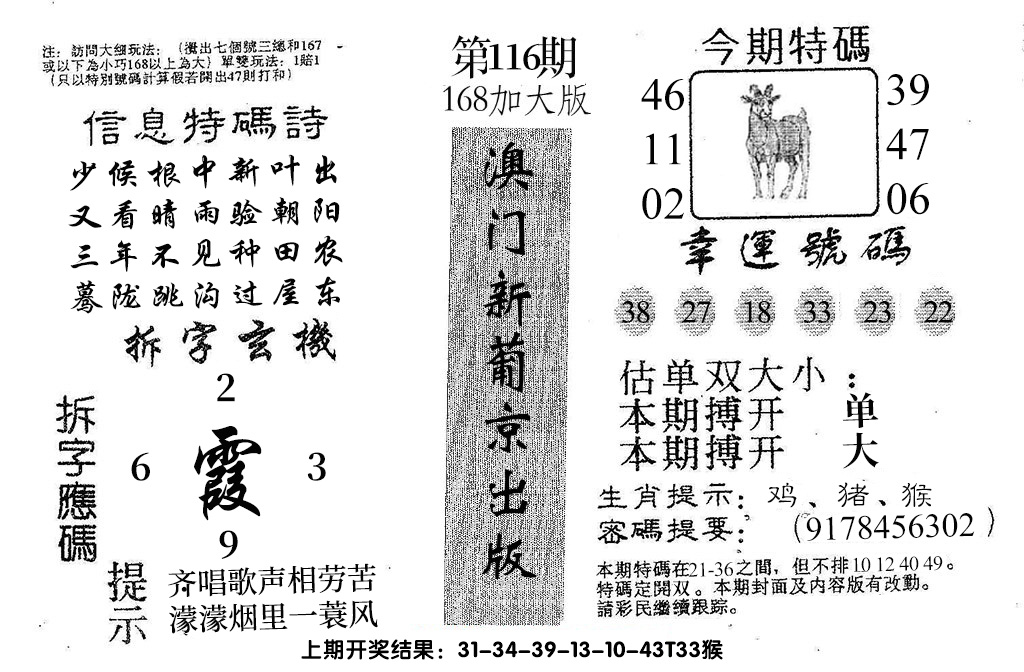 注：訪問大细玩法：（攪出七個號三總和167
或以下為小巧168以上為大）單雙玩法：1賠1
（只以特別號碼計算假若開出47則打和）
信息特碼詩
少候根中新叶出
又看晴雨验朝阳
三年不见种田农
蓦陇跳沟过屋东
拆字玄機
2
拆字應碼
6 霞 3
9
提示
齐唱歌声相劳苦
濛濛烟里一蓑风
第116期
168加大版
澳门新葡京出版
今期特碼
46 39
11 47
02 06
幸運號碼
38 27 18 33 23 22
估单双大小：
本期搏开 单
本期搏开 大
生肖提示：鸡、猪、猴
密碼提要：（9178456302）
本期特碼在21-36之間，但不排10 12 40 49。
特碼定開双。本期封面及内容版有改動。
請彩民繼續跟踪。
上期开奖结果：31-34-39-13-10-43T33猴